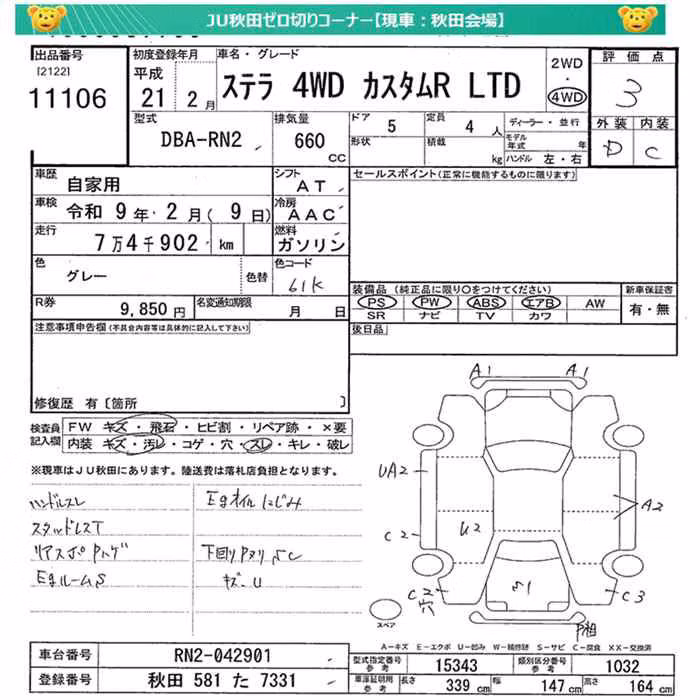 JU秋田ゼロ切りコーナー【現車：秋田会場】
出品番号
[2122]
11106
初度登録年月
平成
21 2月
車名・グレード
ステラ 4WD カスタムR LTD
2WD
・
4WD
評価点
3
外装 内装
D C
型式
DBA-RN2
排気量
660
CC
ドア 5
定員 4 人
ディーラー・並行
形状
積載 kg
モデル年式 年
ハンドル 左・右
車歴
自家用
シフト
AT
セールスポイント(正常に機能するものに限ります)
車検
令和 9年 2月 ( 9日)
冷房
AAC
走行
7万4千902 km
燃料
ガソリン
色
グレー
色替
色コード
61K
装備品 (純正品に限り〇をつけてください)
新車保証書
PS PW ABS エアB AW
有・無
SR ナビ TV カワ
R券
9,850 円
名変通知期限
月 日
後日品
注意事項申告欄(不具合内容等は具体的に記入して下さい)
修復歴 有〔箇所 〕
検査員記入欄
FW キズ・飛石・ヒビ割・リペア跡・×要
内装 キズ・汚レ・コゲ・穴・スレ・キレ・破レ
※現車はJU秋田にあります。陸送費は落札店負担となります。
ハンドルスレ
Egオイルにじみ
スタッドレスT
リアスポPハゲ
下回りPヌリSC
EgルームS
キズ・U
A1 A1
UA2
A2
C2
U2
C2
穴
S1
C3
P相
スペア
A-キズ E-エクボ U-凹み W-補修跡 S-サビ C-腐食 XX-交換済
車台番号
RN2-042901
型式指定番号
参考
15343
類別区分番号
参考
1032
登録番号
秋田 581 た 7331
車庫証明用
参考
長さ 339 cm
幅 147 cm
高さ 164 cm